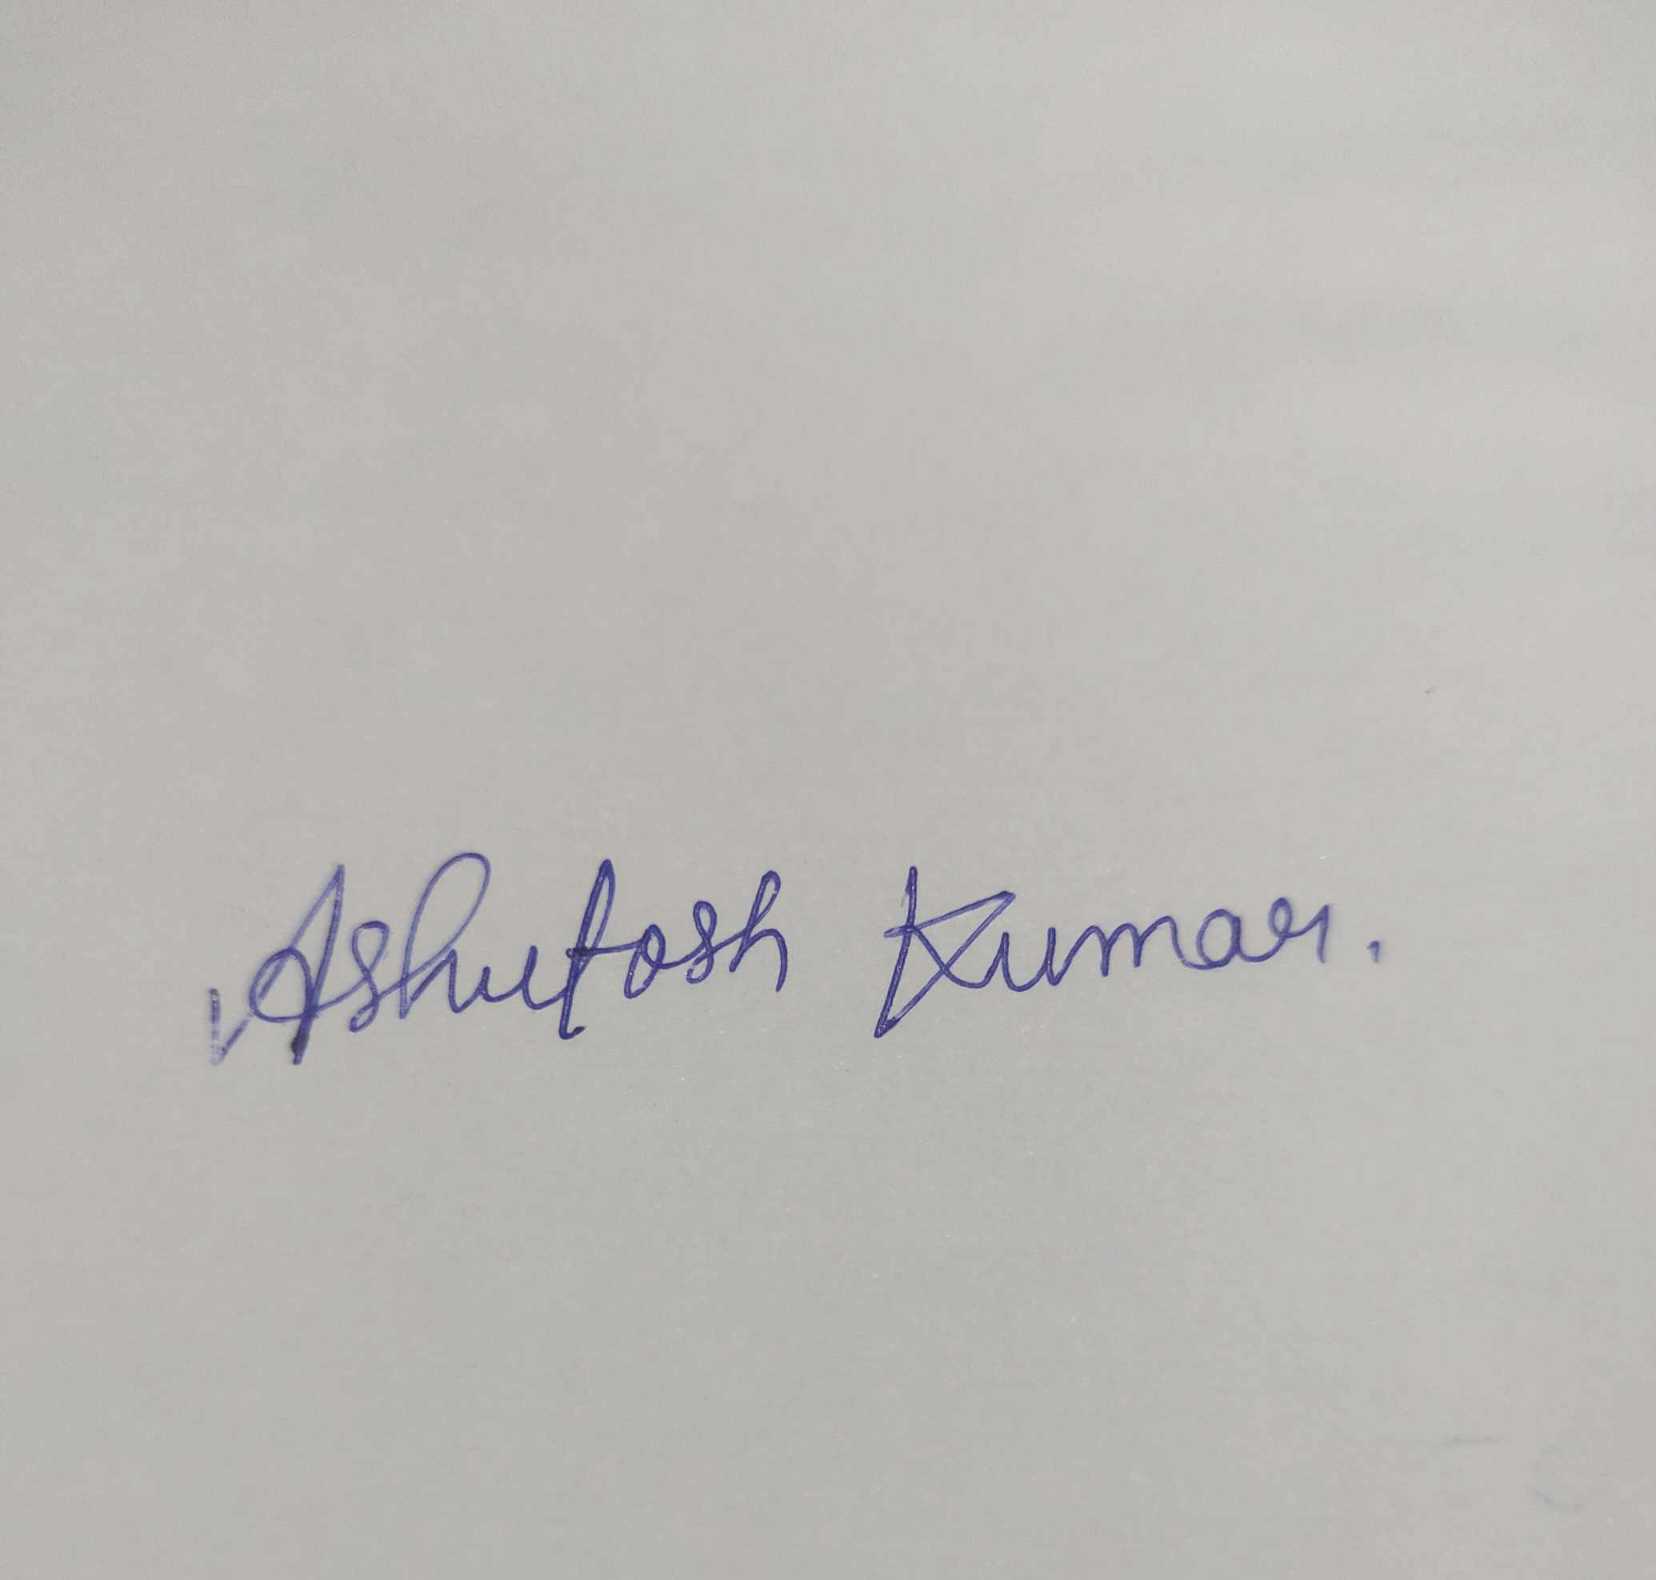 Ashutosh Kumar.